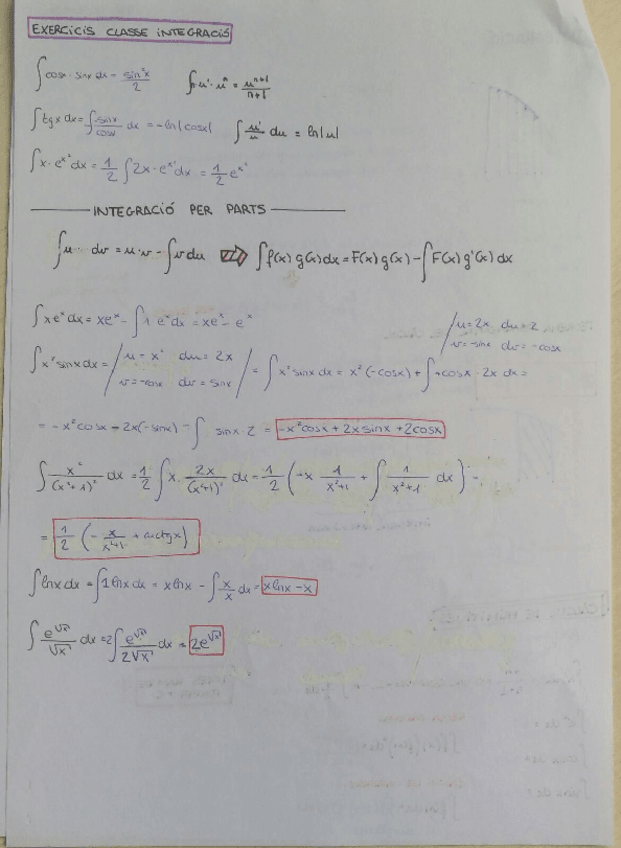 EXERCICIS CLASSE INTEGRACIÓ
∫cosx · sinx dx = sin²x/2   ∫u' · uⁿ = uⁿ⁺¹/n+1
∫tgx dx = ∫-sinx/cosx dx = -ln|cosx|   ∫u'/u du = ln|u|
∫x · eˣ² dx = 1/2 ∫2x · eˣ² dx = 1/2 eˣ²
INTEGRACIÓ PER PARTS
∫u · dv = u · v - ∫v du ⇒ ∫f(x) g(x) dx = F(x) g(x) - ∫F(x) g'(x) dx
∫xeˣ dx = xeˣ - ∫1 eˣ dx = xeˣ - eˣ   / u = 2x du = 2
∫x² sinx dx = / u = x² du = 2x   / v = -sinx dv = -cosx
/ v = -cosx dv = sinx / = ∫x² sinx dx = x² (-cosx) + ∫+cosx · 2x dx =
= -x² cosx - 2x(-sinx) - ∫ sinx · 2 = -x² cosx + 2x sinx + 2cosx
∫x²/(x²+1)² dx = 1/2 ∫x · 2x/(x²+1)² dx = 1/2 (-x 1/x²+1 + ∫1/x²+1 dx) =
= 1/2 (-x/x²+1 + arctgx)
∫lnx dx = ∫1 lnx dx = x lnx - ∫x/x dx = x lnx - x
∫e^√x/√x dx = 2∫e^√x/2√x dx = 2e^√x